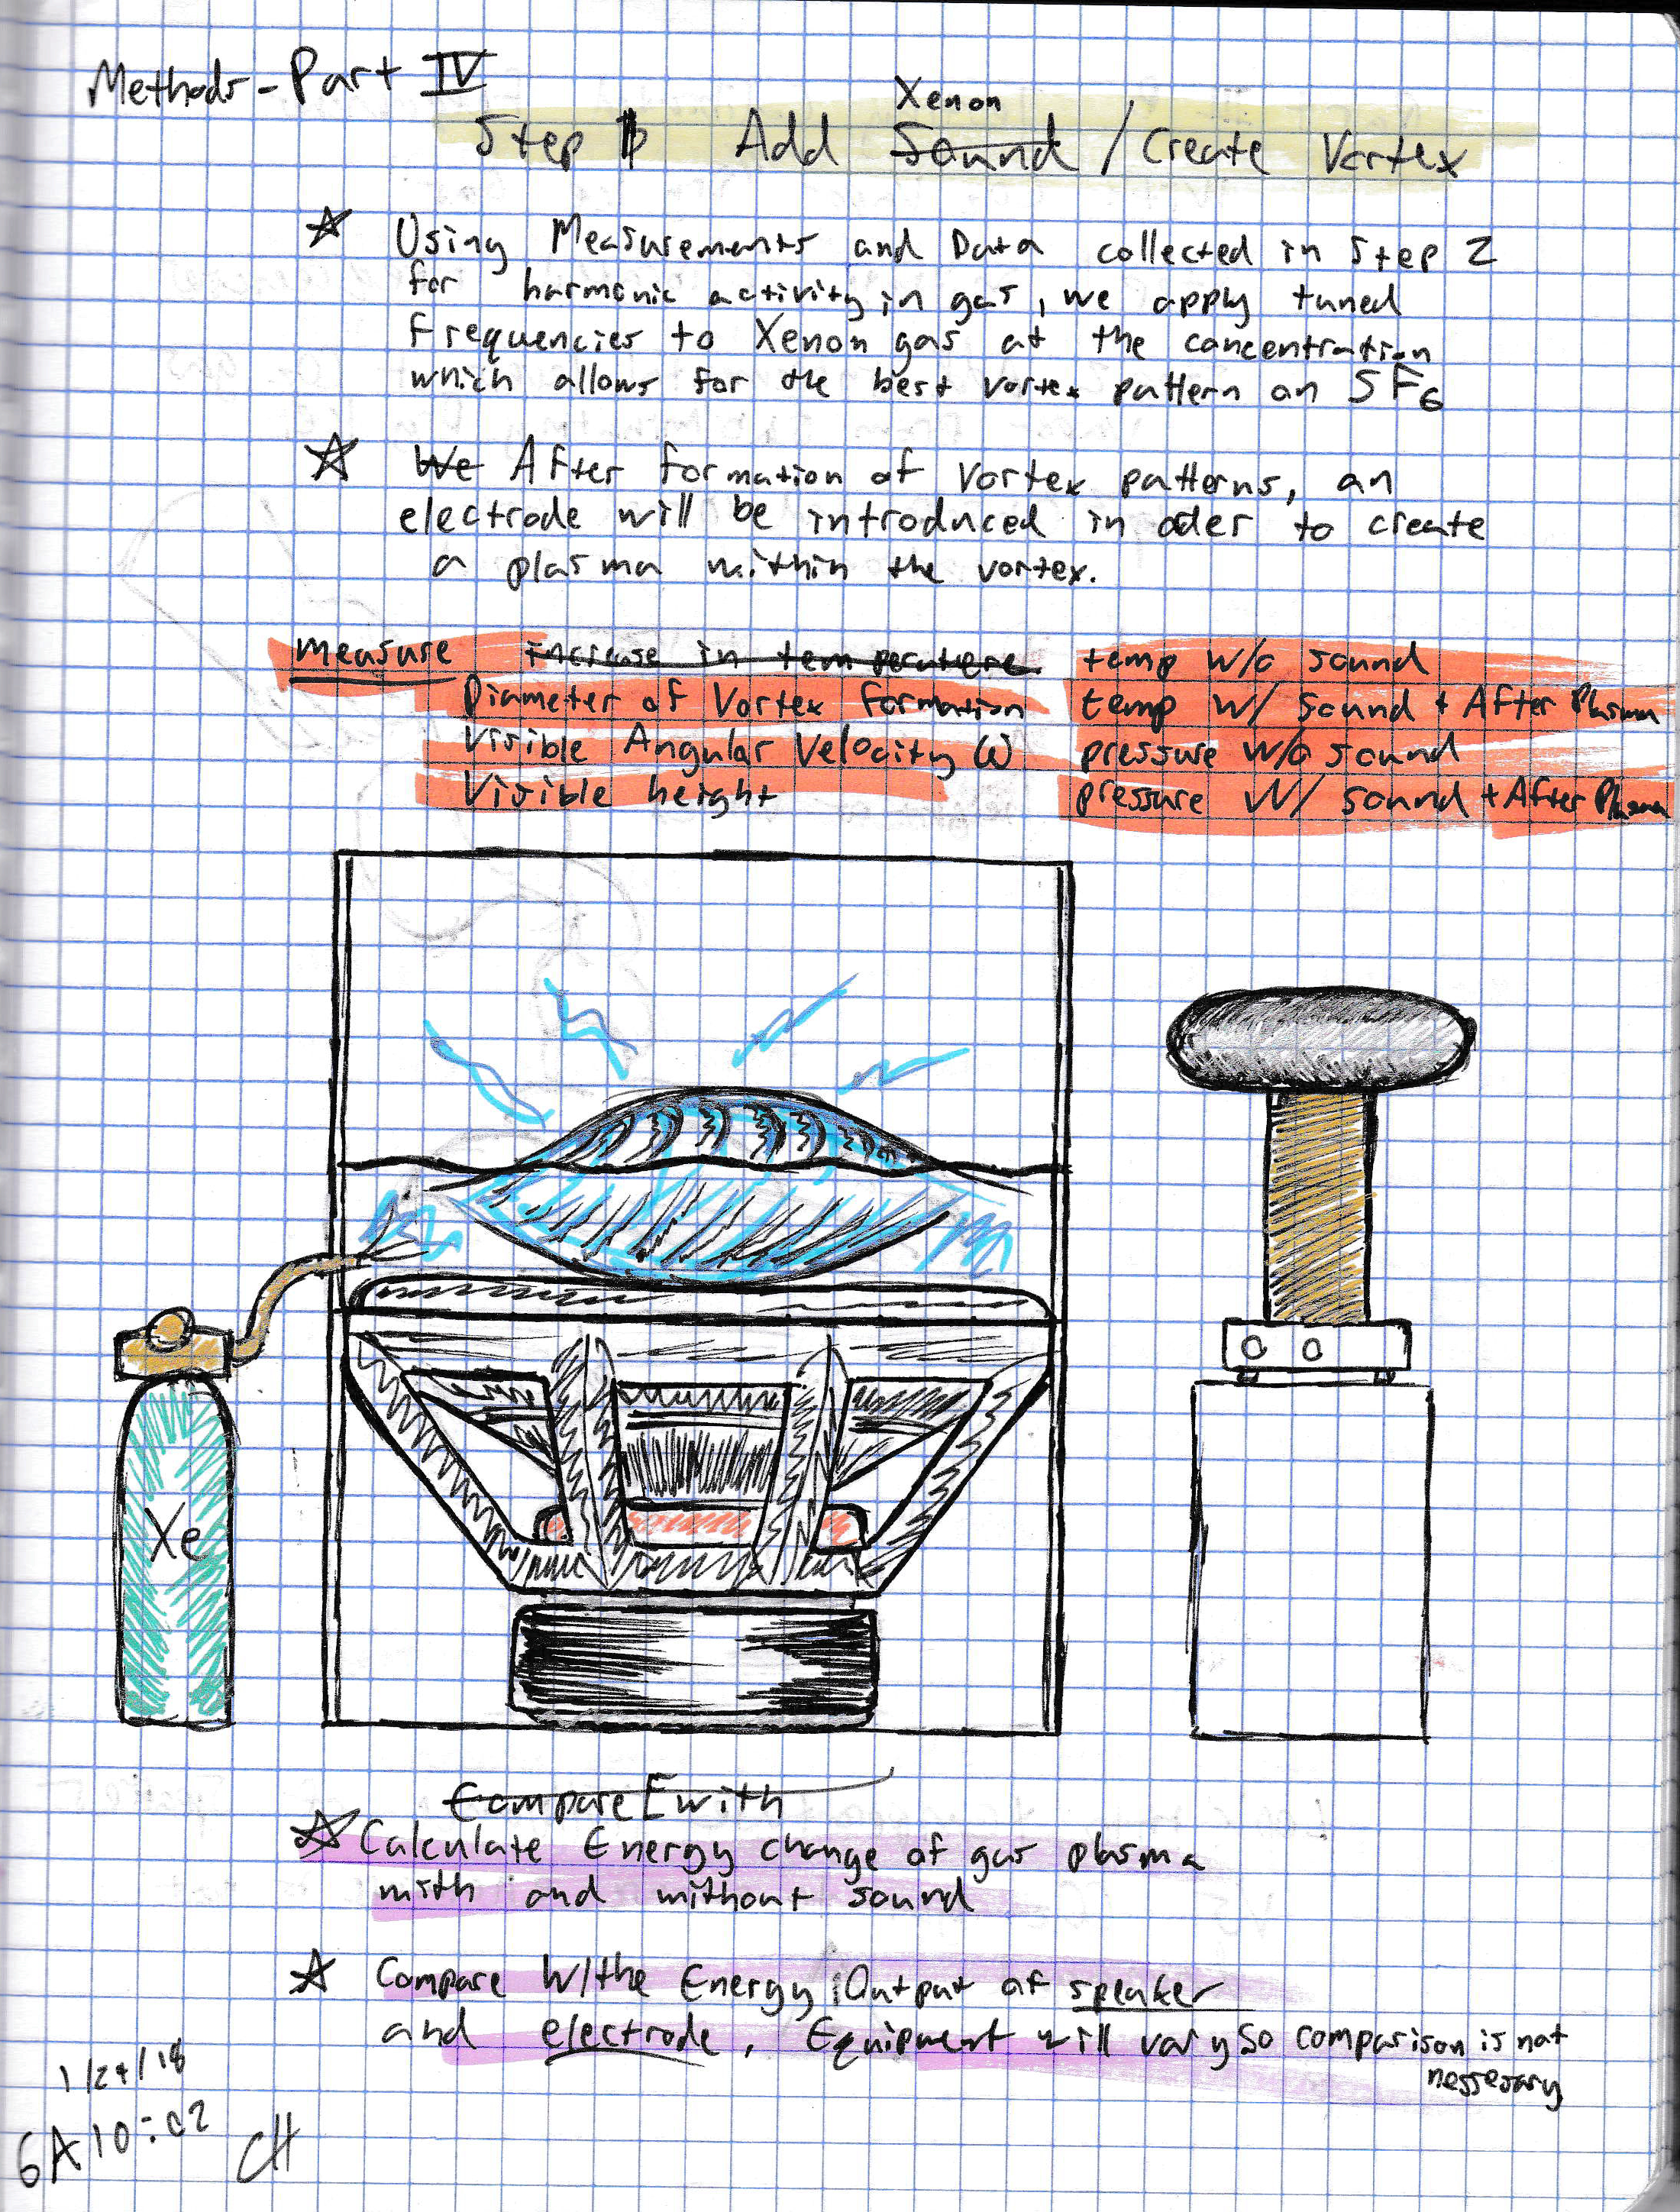 Methods - Part IV
Xenon
Step 1 Add Sound / Create Vortex
☆ Using Measurements and Data collected in Step 2
for harmonic activity in gas, we apply tuned
Frequencies to Xenon gas at the concentration
which allows for the best vortex pattern on SF6
☆ We After formation of Vortex patterns, an
electrode will be introduced in oder to create
a plasma within the vortex.
measure increase in temperature temp w/o sound
Diameter of Vortex formation temp w/ sound + After Plasma
Visible Angular Velocity ω pressure w/o sound
Visible height pressure w/ sound + After Plasma
Xe
Compare E with
☆ Calculate Energy change of gas plasma
with and without sound
☆ Compare w/the Energy Output of speaker
and electrode. Equipment will vary so comparison is not
nessesary
1/24/18
6A10:02 CH